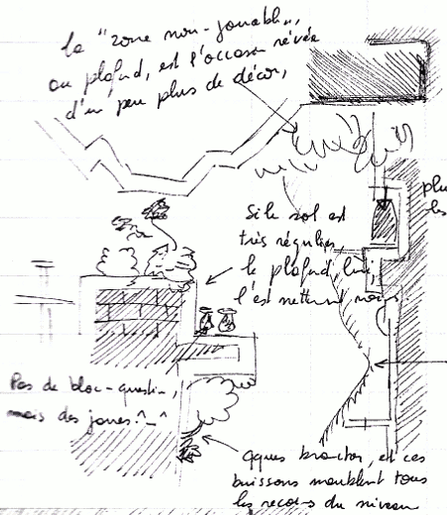 la "zone non-jouable",
au plafond, est l'occasion rêvée
d'un peu plus de décor,
plu
les
Si le sol est
très régulier,
le plafond, lui,
l'est nettement moins.
Pas de bloc-question,
mais des jarres! ^_^
qques bractor, et ces
buissons meublent tous
les recoins du niveau